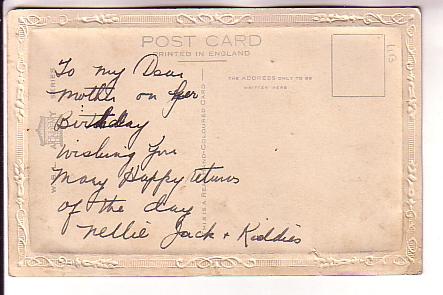 POST CARD
PRINTED IN ENGLAND
THE ADDRESS ONLY TO BE
WRITTEN HERE
To my Dear
Mother on Her
Birthday
Wishing You
Many Happy returns
of the day
Nellie Jack + Kiddies
SERIES
THIS IS A REAL HAND-COLOURED CARD